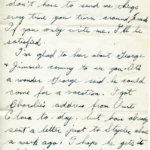 don't have to send me things
every time you turn around, Just
if you only write me. I'll be
satisfied.
I'm glad to hear about George
& Jimmie coming to see you. It's
a wonder George said he could
come for a vacation. I got
Charlie's address from Aunt
Clara to-day. but have always
sent a letter just to
a week ago. I hope he gets it